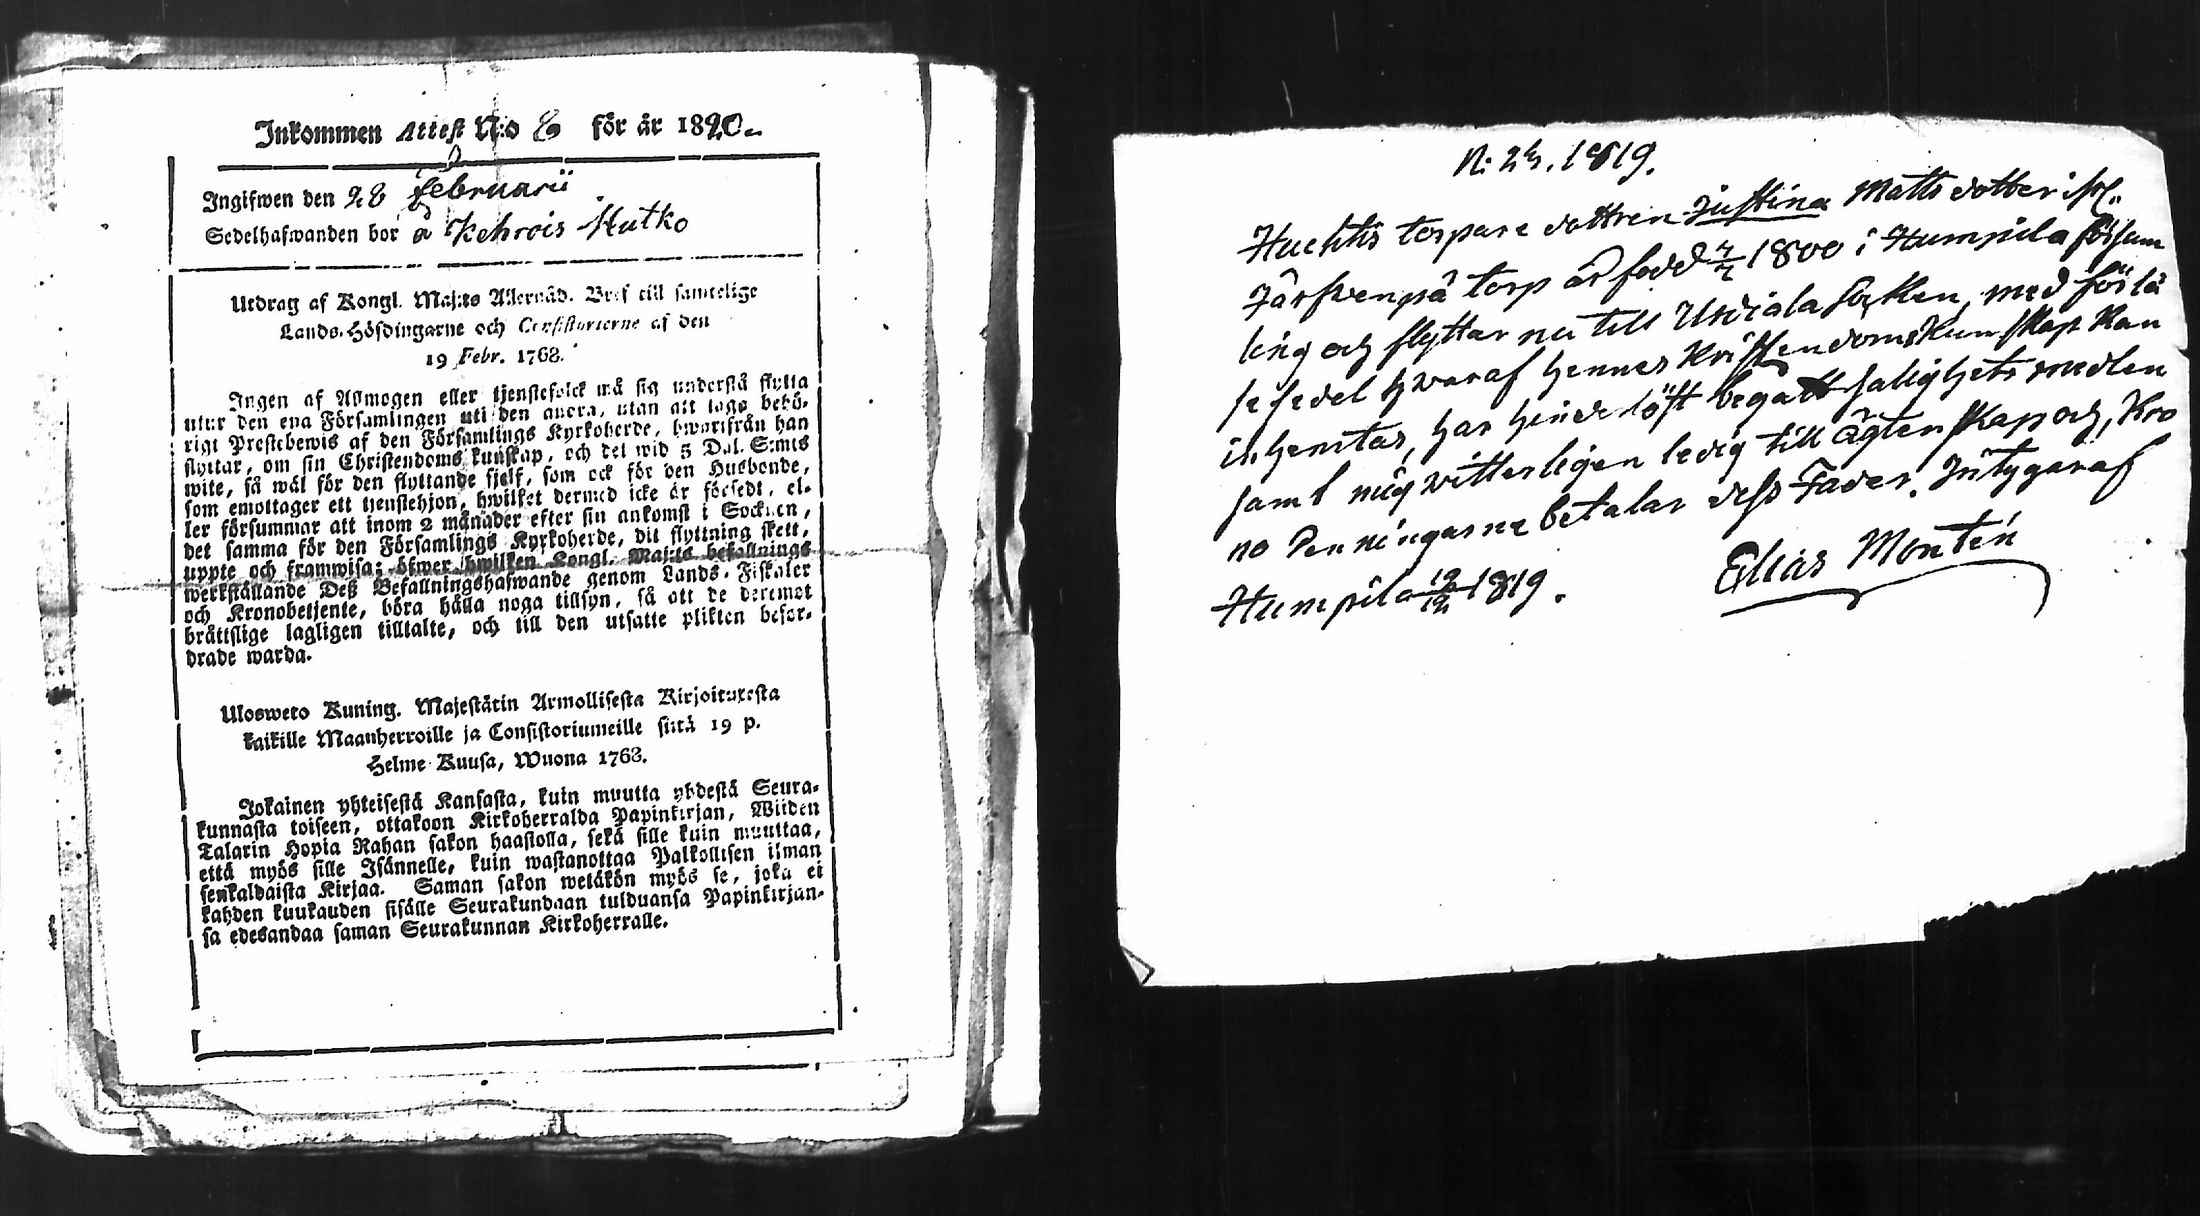 Inkommen Attest N:o 8 för år 1820.
Ingifwen den 28 februarii
Sedelhafwanden bor å Kehrois Hutko
Utdrag af Kongl. Maj:ts Allernåd. Bref till samtelige
Lands-Höfdingarne och Consistorierne af den
19 Febr. 1768.
Ingen af Allmogen eller tjenstefolck må sig understå flytta
utur den ena Församlingen uti den andra, utan att taga behö-
rigt Prestebewis af den Församlings Kyrkoherde, hwarifrån han
flyttar, om sin Christendoms kunskap, och det wid 5 Dal. S:mts
wite, så wäl för den flyttande sjelf, som ock för den Husbonde,
som emottager ett tjenstehjon, hwilket dermed icke är försedt, el-
ler försummar att inom 2 månader efter sin ankomst i Socknen,
det samma för den Församlings Kyrkoherde, dit flyttning skett,
uppte och framwisa; öfwer hwilken Kongl. Maj:ts befallnings
werkställande Deß Befallningshafwande genom Lands-Fiskaler
och Kronobetjente, böra hålla noga tillsyn, så att de deremot
bråttslige lagligen tilltalte, och till den utsatte plikten befor-
drade warda.
Ulosweto Kuning. Majestätin Armollisesta Kirjoituxesta
kaikille Maanherroille ja Consistoriumeille siitä 19 p.
Helme-Kuusa, Wuona 1768.
Jokainen yhteisestä Kansasta, kuin muutta yhdestä Seura-
kunnasta toiseen, ottakoon Kirkoherralda Papinkirjan, Wiiden
Talarin Hopia Rahan sakon haastolla, sekä sille kuin muuttaa,
että myös sille Isännelle, kuin wastanottaa Palkollisen ilman
senkaldaista Kirjaa. Saman sakon wetäkön myös se, joka ei
kahden kuukauden sisälle Seurakundaan tulduansa Papinkirjan-
sa edesandaa saman Seurakunnan Kirkoherralle.
N: 24. 1819.
Huchtis torpare dottren Justina Matts dotter ifrån
Järfwenpä torp är född 7/7 1800 i Humpila försam
ling och flyttar nu till Urdiala Socken, med förlå
fsedel hwaraf hennes Kristendoms Kunskap kan
inhemtas, har hinderlöst begått salighets medlen
samt mig witterligen ledig till ägtenskap och, Kro
no Penningarne betalar dess Fader. Intygar af
Humpila 12/12 1819.
Elias Montin